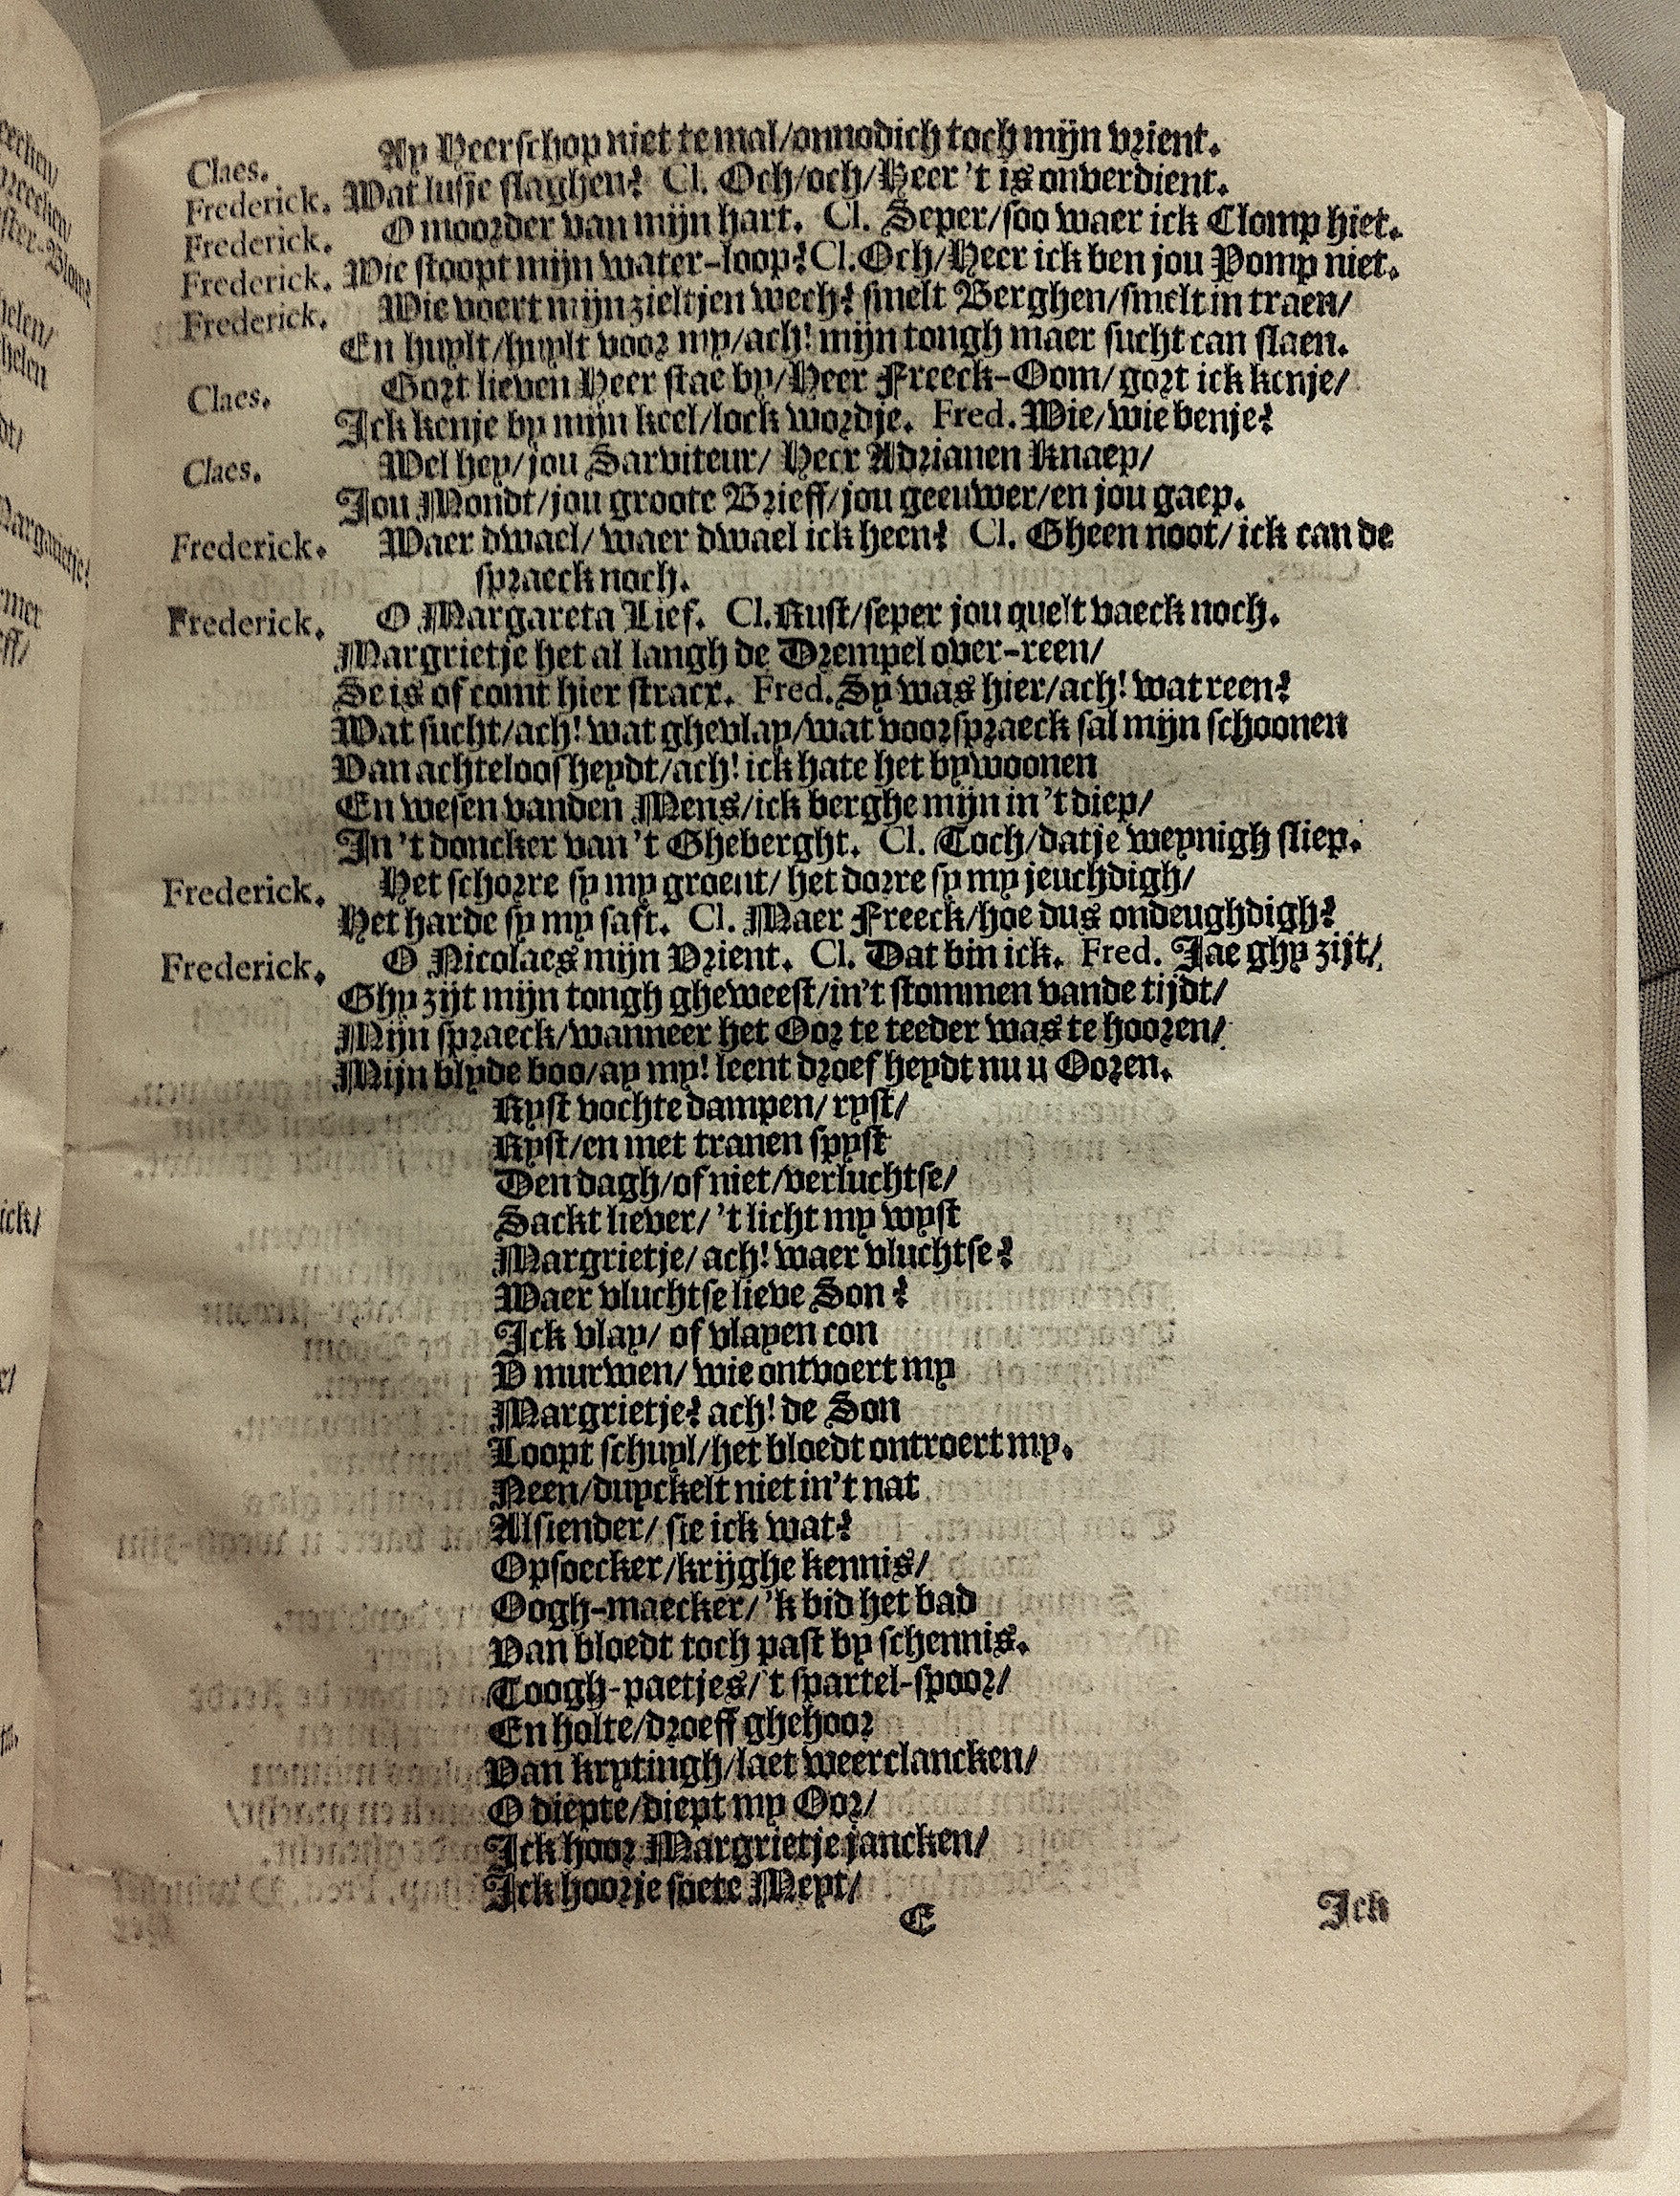 Claes. Ay Heerschop niet te mal/onnodich toch mijn vrient.
Frederick. Wat lusje slaghen? Cl. Och/och/Heer 't is onverdient.
Frederick. O moorder van mijn hart. Cl. Seper/soo waer ick Clomp hiet.
Frederick. Wie stoopt mijn water-loop? Cl. Och/Heer ick ben jou Pomp niet.
Frederick. Wie voert mijn zieltjen wech? smelt Berghen/smelt in traen/
En huylt/huylt voor my/ach! mijn tongh maer sucht can slaen.
Claes. Gort lieven Heer stae by/Heer Freeck-Oom/gort ick kenje/
Ick kenje by mijn keel/lock wordje. Fred. Wie/wie benje?
Claes. Wel hey/jou Sarviteur/ Heer Adrianen Knaep/
Jou Mondt/jou groote Brieff/jou geeuwer/en jou gaep.
Frederick. Waer dwael/waer dwael ick heen? Cl. Gheen noot/ick can de
spraeck noch.
Frederick. O Margareta Lief. Cl. Rust/seper jou quelt vaeck noch.
Margrietje het al langh de Drempel over-reen/
Se is of comt hier stracx. Fred. Sy was hier/ach! wat reen?
Wat sucht/ach! wat ghevlay/wat voorspraeck sal mijn schoonen
Van achteloosheydt/ach! ick hate het bywoonen
En wesen vanden Mens/ick berghe mijn in 't diep/
In 't doncker van 't Gheberght. Cl. Toch/datje weynigh sliep.
Frederick. Het schorre sy my groent/het dorre sy my jeuchdigh/
Het harde sy my saft. Cl. Maer Freeck/hoe dus ondeughdigh?
Frederick. O Nicolaes mijn Vrient. Cl. Dat bin ick. Fred. Jae ghy zijt/
Ghy zijt mijn tongh gheweest/in't stommen vande tijdt/
Mijn spraeck/wanneer het Oor te teeder was te hooren/
Mijn blyde boo/ay my! leent droefheydt nu u Ooren.
Ryst vochte dampen/ryst/
Ryst/en met tranen spyst
Den dagh/of niet/verluchtse/
Sackt liever/'t licht my wyst
Margrietje/ach! waer vluchtse?
Waer vluchtse lieve Son?
Ick vlay/of vlayen con
V murwen/wie ontvoert my
Margrietje? ach! de Son
Loopt schuyl/het bloedt ontroert my.
Neen/duyckelt niet in't nat
Alsiender/sie ick wat?
Opsoecker/krijghe kennis/
Oogh-maecker/'k bid het bad
Van bloedt toch past by schennis.
Toogh-paetjes/'t spartel-spoor/
En holte/droeff ghehoor
Van krytingh/laet weerclancken/
O diepte/diept my Oor/
Ick hoor Margrietje jancken/
Ick hoorje soete Meyt/
E Ick